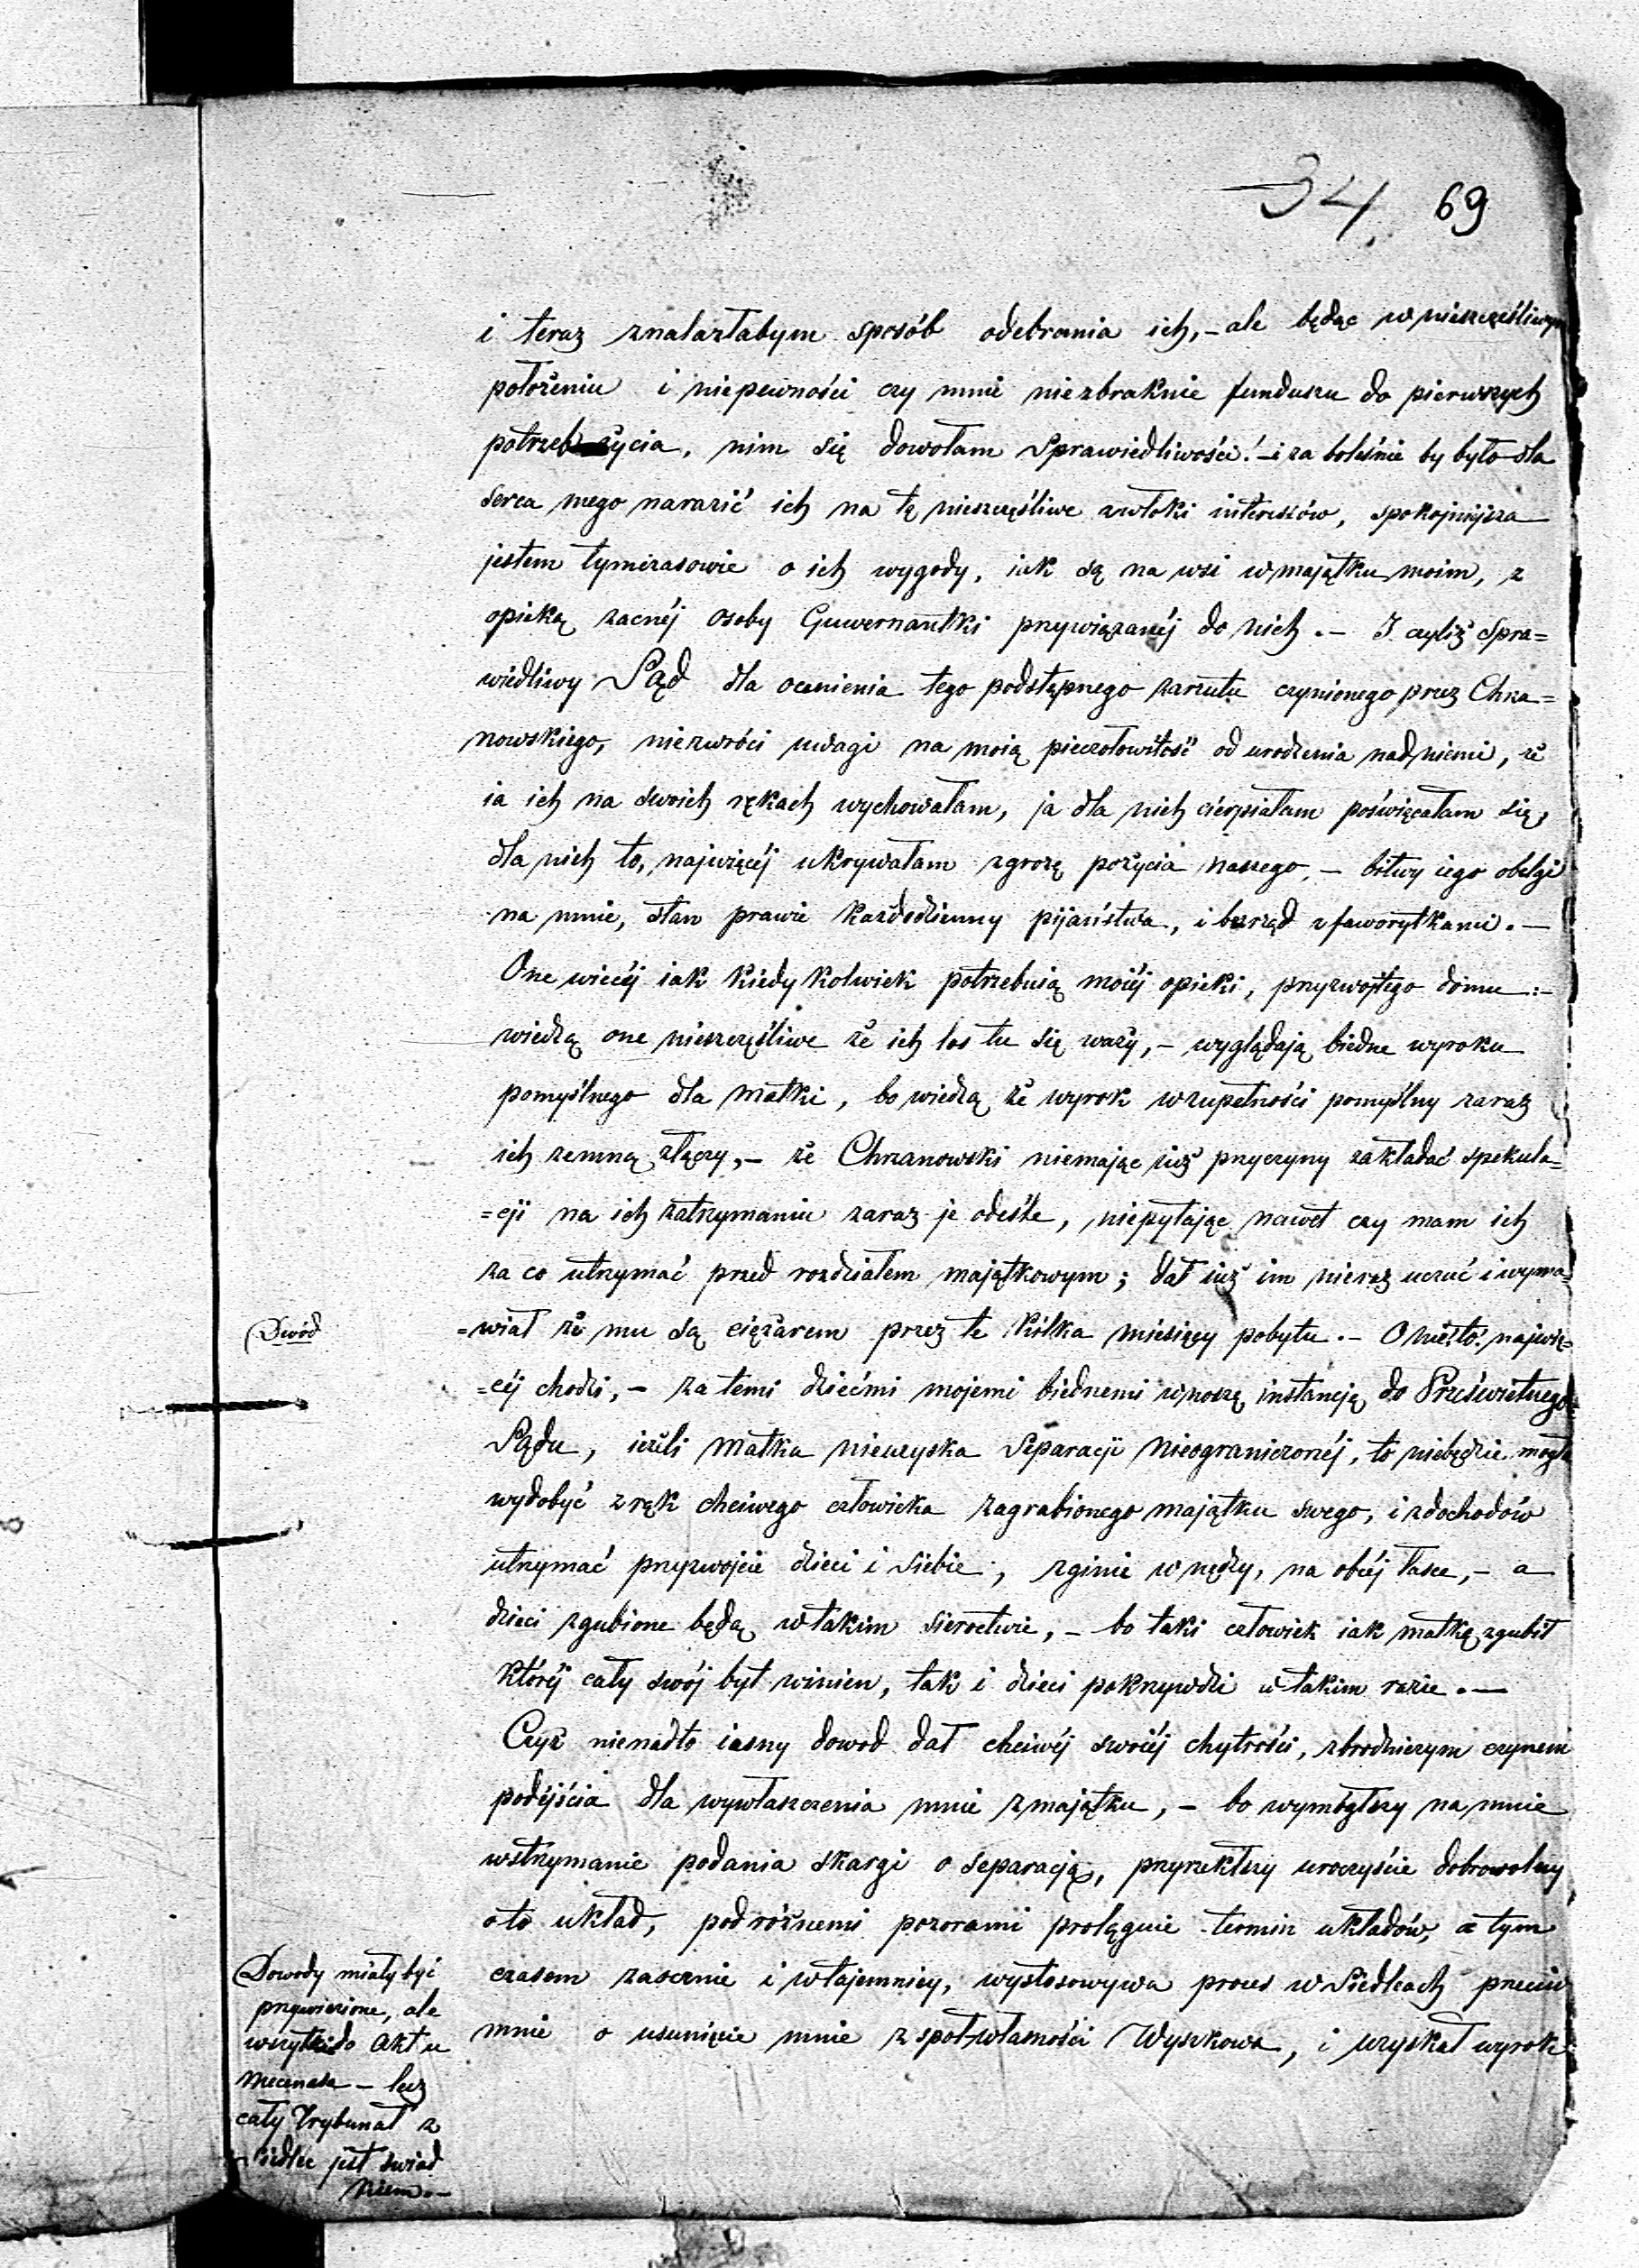 34. 69
i teraz znalazłabym sposób odebrania ich, – ale będąc w nieszczęśliwym
położeniu i niepewności czy mnie niezbraknie funduszu do pierwszych
potrzeb życia, nim się dowołam Sprawiedliwości! – i za boleśnie by było dla
serca mego narazić ich na tę nieszczęśliwe zwłoki interessów, spokojniejsza
jestem tymczasowie o ich wygody, iak są na wsi w majątku moim, z
opieką zacnéj osoby Guwernantki przywiązanéj do nich. – I czyliż Spra=
wiedliwy Sąd dla ocenienia tego podstępnego zarzutu czynionego przez Chrza=
nowskiego, niezwróci uwagi na moią pieczołowitość od urodzenia nad niemi, że
ia ich na swoich rękach wychowałam, ja dla nich cierpiałam poświęcałam się,
dla nich to, najwięcéj ukrywałam zgrozę pożycia naszego, – bitwy iego obelgi
na mnie, stan prawie każdodzienny pijaństwa, i bezrząd z faworytkami. –
One wiecéj iak kiedykolwiek potrzebuią moiéj opieki, przyzwoitego domu :–
wiedzą one nieszczęśliwe że ich los tu się waży, – wyglądają biedne wyroku
pomyślnego dla Matki, bo wiedzą że wyrok w zupełności pomyślny zaraz
ich zemną złączy, – że Chrzanowski niemając iuż przyczyny zakładać spekula=
=cji na ich zatrzymaniu zaraz je odeśle, niepytając nawet czy mam ich
za co utrzymać przed rozdziałem majątkowym; dał iuż im nieraz uczuć i wyma=
=wiał że mu są ciężarem przez te kilka miesięcy pobytu. – O nie to! najwię=
Dwód
=céj chodzi, – za temi dziećmi mojemi biednemi wnoszę instancją do Prześwietnego
Sądu, ieżeli Matka nieuzyska Separacji nieograniczonéj, to niebędzie mogła
wydobyć z rąk chciwego człowieka zagrabionego majątku swego, i z dochodów
utrzymać przyzwoicie dzieci i siebie; zginie w nędzy, na obcéj łasce, – a
dzieci zgubione będą w takim sieroctwie, – bo taki człowiek iak matkę zgubił
któréj cały swój byt winien, tak i dzieci pokrzywdzi w takim razie. –
Czyż nienadto iasny dowod dał chciwéj swoiéj chytrości, zbrodniczym czynem
podéjścia dla wywłaszczenia mnie z majątku, – bo wymógłszy na mnie
wstrzymanie podania skargi o separacją, przyrzekłszy uroczyście dobrowolny
o to układ, pod różnemi pozorami prolęguie termin układów, a tym
czasem zaocznie i w tajemnicy, wystosowywa proces w Siedlcach przeciw
mnie o usunięcie mnie z społ-własności Wyszkowa, i uzyskał wyrok
Dowody miały być
przywiezione, ale
wszytkido Aktu
Mecenasa – lecz
cały Trybunał z
Siedlec jest świad
kiem. –